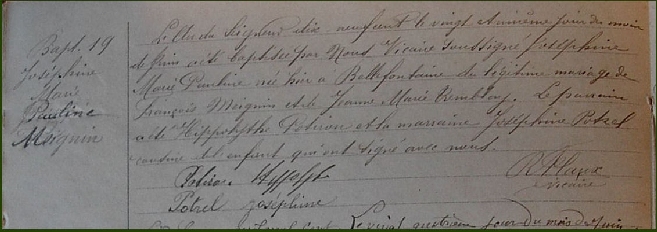 Bapt. 19
Joséphine
Marie
Pauline
Meignin
L'An du Seigneur dix neufcent le vingt et unième jour du mois
de Juin a été baptisée par Nous Vicaire soussigné Joséphine
Marie Pauline née hier à Bellefontaine du légitime mariage de
François Meignin et de Jeanne Marie Tremblay. Le parrain
a été Hippolythe Potiron et la marraine Joséphine Potrel
cousine de l'enfant qui ont signé avec nous.
Potiron Hyppolyte
Potrel Joséphine
Vicaire
Le vingt quatrième jour du mois de Juin